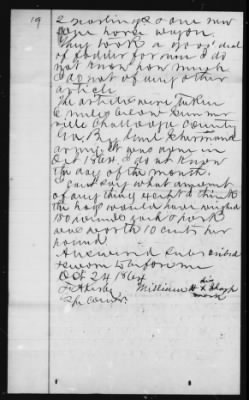 19
2 yearlings & one new
one horse wagon.
They took a good deal
of fodder from me I do
not know how much
I do not of any other
article
The articles were taken
6 miles below Summer
ville Chattooga County
Ga. By Genl Shermans
army. It was gone in
Oct 1864. I do not know
the day of the month.
I cant say what amount
of any thing weighed I think
the hogs would have weighed
100 pounds each & pork
was worth 10 cents per
pound
Answered Subscribed
& sworn to before me
Oct 24 1864
William his X
mark